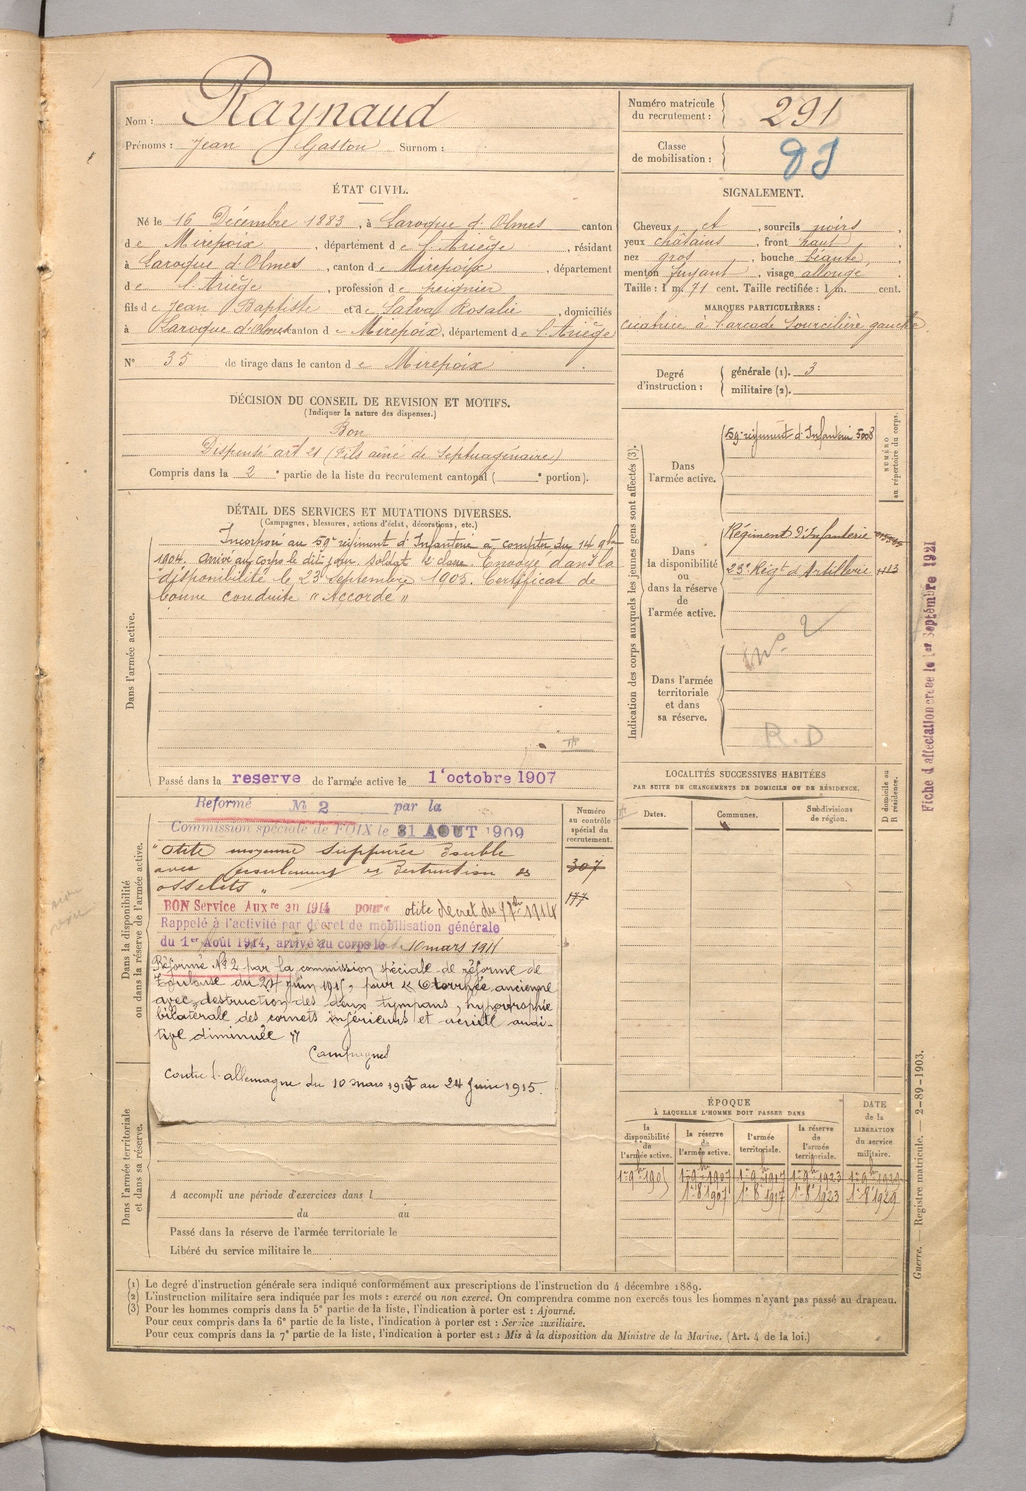 Nom : Raynaud
Prénoms : Jean Gaston Surnom :
Numéro matricule du recrutement : 291
Classe de mobilisation :
ÉTAT CIVIL.
Né le 16 Décembre 1883, à Laroque d'Olmes canton
de Mirepoix, département de l'Ariège, résidant
à Laroque d'Olmes, canton de Mirepoix, département
de l'Ariège, profession de peignier
fils de Jean Baptiste et de Salva Rosalie, domiciliés
à Laroque d'Olmes canton de Mirepoix, département de l'Ariège
N° 35 de tirage dans le canton de Mirepoix
SIGNALEMENT.
Cheveux et, sourcils noirs,
yeux châtains, front haut,
nez gros, bouche béante,
menton fuyant, visage allongé.
Taille : 1 m. 71 cent. Taille rectifiée : 1 m. cent.
MARQUES PARTICULIÈRES :
cicatrice à l'arcade sourcilière gauche.
Degré d'instruction : générale (1). 3
militaire (2).
DÉCISION DU CONSEIL DE REVISION ET MOTIFS.
(Indiquer la nature des dispenses.)
Bon
Dispensé art 21 (Fils aîné de Septuagénaire)
Compris dans la 2e partie de la liste du recrutement cantonal ( e portion).
DÉTAIL DES SERVICES ET MUTATIONS DIVERSES.
(Campagnes, blessures, actions d'éclat, décorations, etc.)
Dans l'armée active.
Incorporé au 59e régiment d'Infanterie à compter du 14 9bre
1904. Arrivé au corps le dit jour, soldat 2e classe. Envoyé dans la
disponibilité le 23 Septembre 1905. Certificat de
bonne conduite "Accordé"
Passé dans la reserve de l'armée active le 1er octobre 1907
Indication des corps auxquels les jeunes gens sont affectés (3).
NUMÉRO au répertoire du corps.
Dans l'armée active.
59e régiment d'Infanterie 5008
Dans la disponibilité ou dans la réserve de l'armée active.
Régiment d'Infanterie
23e Régt d'Artillerie
Dans l'armée territoriale et dans sa réserve.
R.D
Fiche d'affectation créée le 1er Septembre 1921
LOCALITÉS SUCCESSIVES HABITÉES
PAR SUITE DE CHANGEMENTS DE DOMICILE OU DE RÉSIDENCE.
Dates.
Communes.
Subdivisions de région.
D domicile ou R résidence.
Dans la disponibilité ou dans la réserve de l'armée active.
Numéro au contrôle spécial du recrutement.
307
Reformé No 2 par la
Commission spéciale de FOIX le 31 AOUT 1909
"otite moyenne suppurée double
avec écoulement et destruction des
osselets"
BON Service Auxre en 1914 pour otite décret du 1914
Rappelé à l'activité par décret de mobilisation générale
du 1er Août 1914, arrivé au corps le 10 mars 191
Réformé No 2 par la commission spéciale de réforme de
Toulouse du 24 juin 1915, pour "Otorrhée ancienne
avec destruction des deux tympans, hypertrophie
bilatérale des cornets inférieurs et acuité audi-
tive diminuée"
Campagnes
Contre l'allemagne du 10 mars 1915 au 24 Juin 1915.
Dans l'armée territoriale et dans sa réserve.
A accompli une période d'exercices dans l
du au
Passé dans la réserve de l'armée territoriale le
Libéré du service militaire le
ÉPOQUE
À LAQUELLE L'HOMME DOIT PASSER DANS
la disponibilité de l'armée active.
la réserve de l'armée active.
l'armée territoriale.
la réserve de l'armée territoriale.
DATE de la LIBÉRATION du service militaire.
1er 8bre 1907 1er 8bre 1917 1er 8bre 1923 1er 8bre 1929
Guerre. — Registre matricule. — 2-89-1903.
(1) Le degré d'instruction générale sera indiqué conformément aux prescriptions de l'instruction du 4 décembre 1889.
(2) L'instruction militaire sera indiquée par les mots : exercé ou non exercé. On comprendra comme non exercés tous les hommes n'ayant pas passé au drapeau.
(3) Pour les hommes compris dans la 5e partie de la liste, l'indication à porter est : Ajourné.
Pour ceux compris dans la 6e partie de la liste, l'indication à porter est : Service auxiliaire.
Pour ceux compris dans la 7e partie de la liste, l'indication à porter est : Mis à la disposition du Ministre de la Marine. (Art. 4 de la loi.)